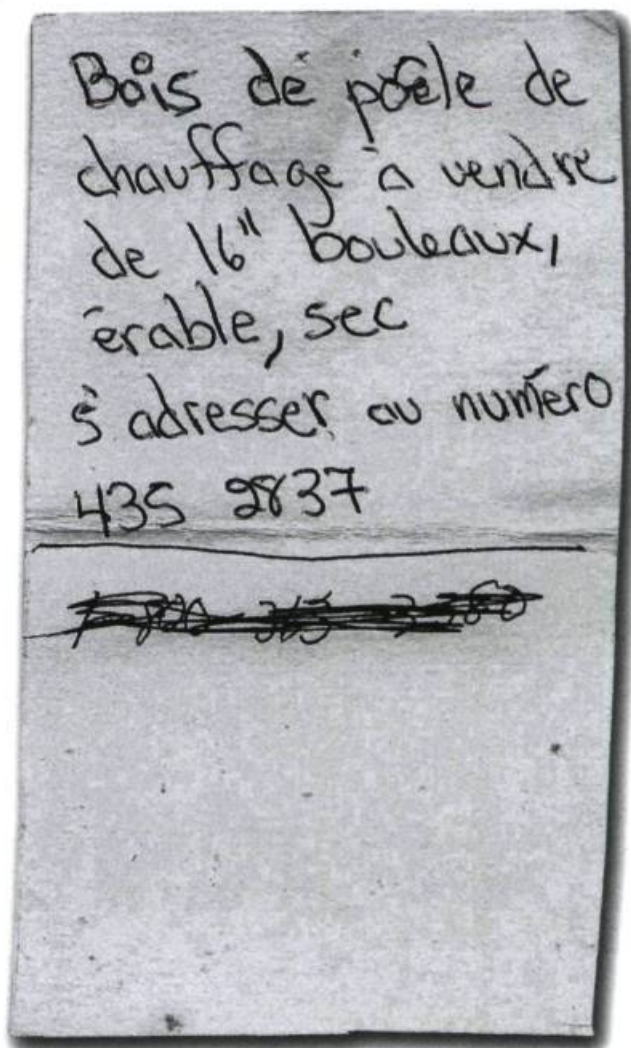 Bois de poêle de
chauffage à vendre
de 16" bouleaux,
érable, sec
s'adresser au numéro
435 2837